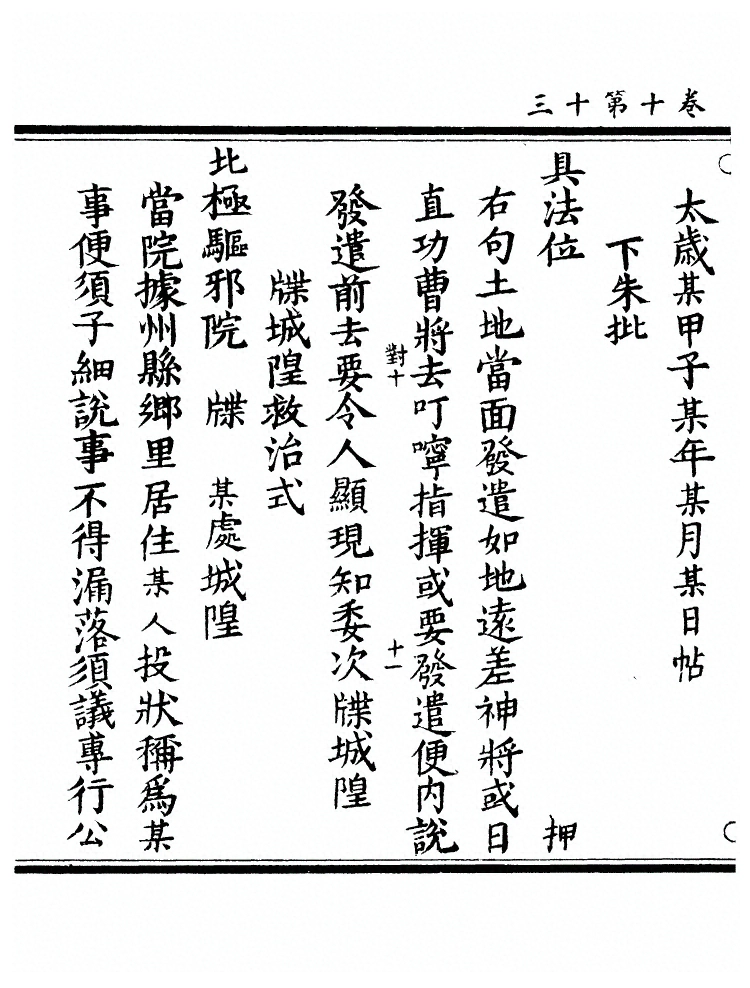 卷十第十三
太歲某甲子某年某月某日帖
下朱批
具法位 押
右句土地當面發遣如地遠差神將或日
直功曹將去叮嚀指揮或要發遣便內說
對十 十一
發遣前去要令人顯現知委次牒城隍
牒城隍救治式
北極驅邪院 牒 某處城隍
當院據州縣鄉里居住某人投狀稱爲某
事便須子細說事不得漏落須議專行公